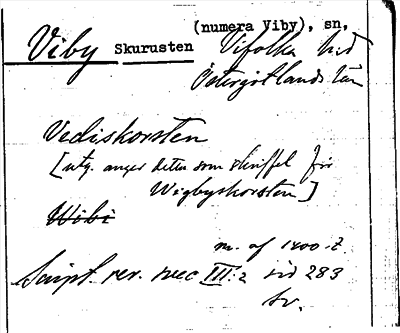 (numera Viby), sn,
Viby Skurusten Vifolka hd
Östergötlands län
Vediskorsten
[utg. anger detta som skriffel för
Wigbyskorsten]
Wibi
m. af 1400-t.
Script. rer. svec III:2 sid 283
sv.